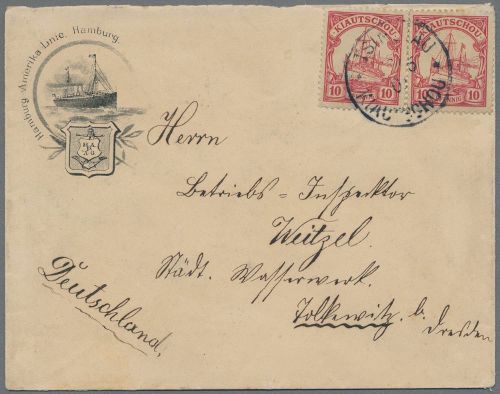 Hamburg-Amerika Linie, Hamburg.
KIAUTSCHOU KIAUTSCHOU
10 10 10 10
TSINGTAU
KIAUTSCHOU
Herrn
Betriebs = Inspektor
Weitzel.
Städt. Wasserwerk.
Tolkewitz. b.
Dresden
Deutschland.